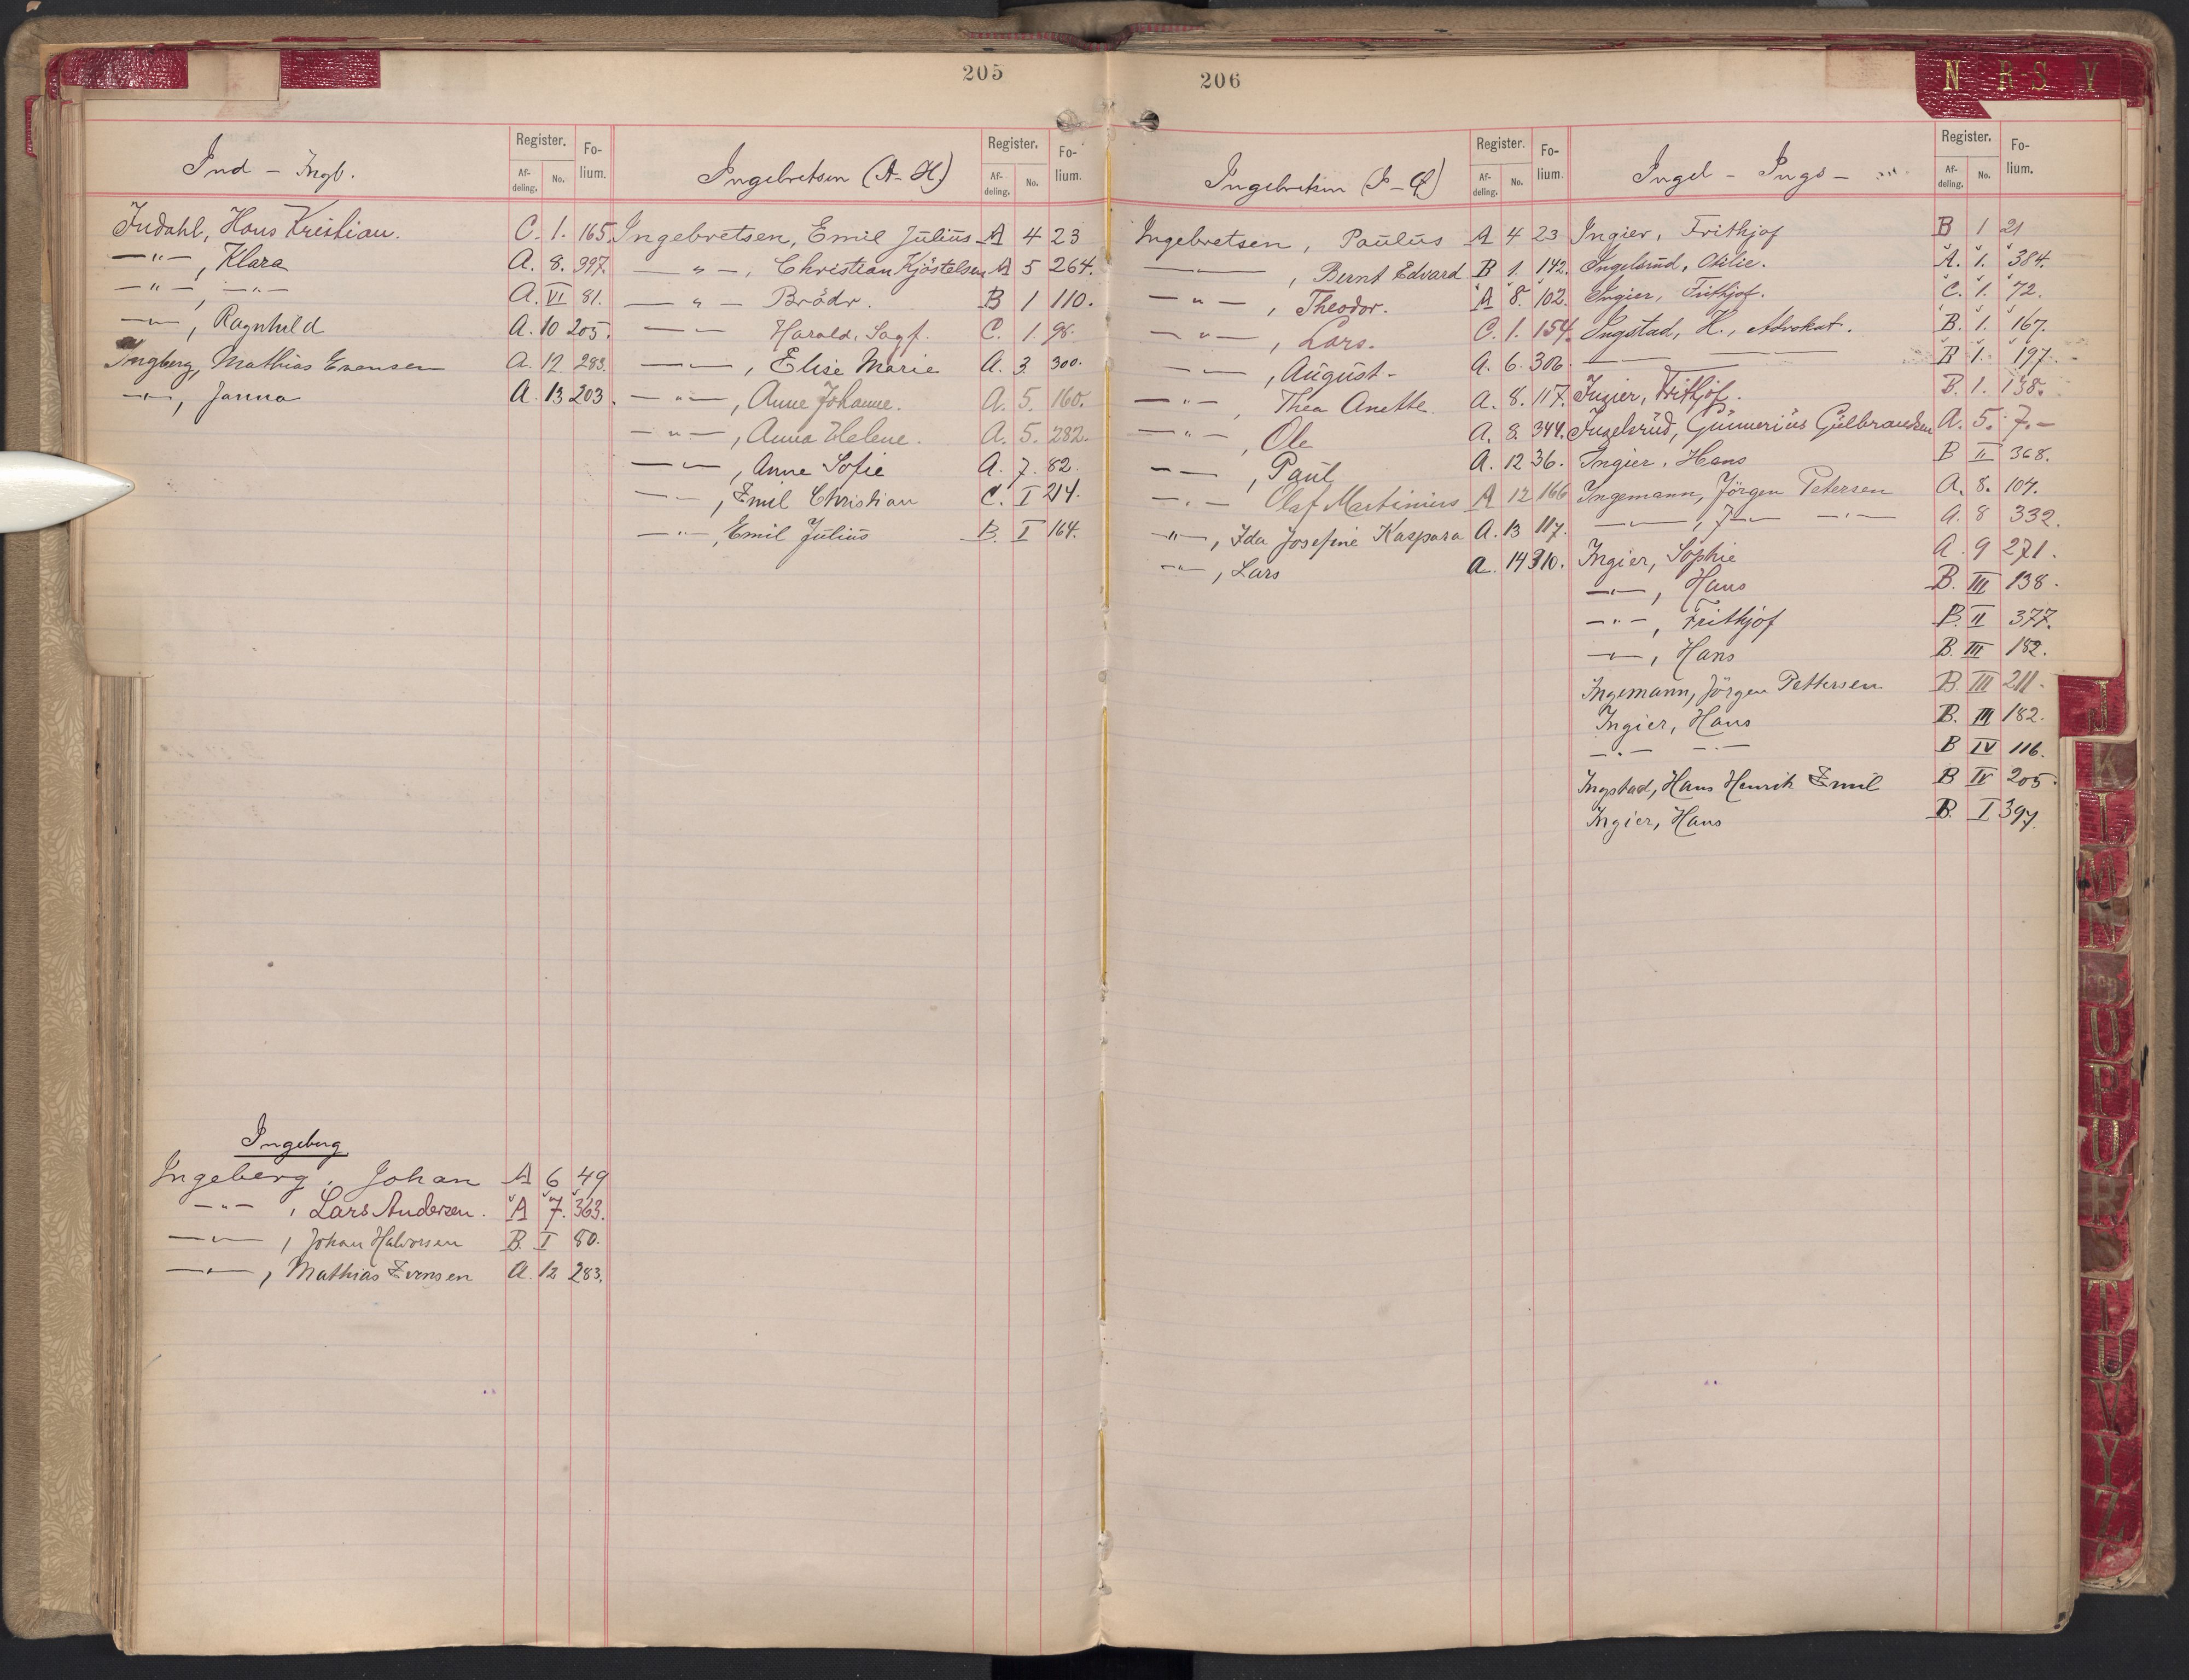 205
Ind - Ingb.
Register.
Af-
deling.
No.
Fo-
lium.
Indahl, Hans Kristian. C. 1. 165
—"—, Klara A. 8. 397.
—"— —"— A. VI 81.
—"—, Ragnhild A. 10 205.
Ingberg, Mathias Evensen A. 12. 283.
—"—, Janna A. 13 203.
Ingeberg
Ingeberg, Johan A 6 49
—"—, Lars Andersen. A 7. 363.
—"—, Johan Halvorsen B. I 80.
—"—, Mathias Evensen A. 12 283.
Ingebretsen (A-H)
Register.
Af-
deling.
No.
Fo-
lium.
Ingebretsen, Emil Julius A 4 23
—"—, Christian Kjöstelsen A 5 264.
—"— Brödr. B 1 110.
—"— Harald, Sagf. C. 1. 98.
—"—, Elise Marie A. 3. 300.
—"—, Anne Johanne. A. 5. 160.
—"—, Anna Helene. A. 5. 282.
—"—, Anne Sofie A. 7. 82.
—"—, Emil Christian C. I 214.
—"—, Emil Julius B. I 164.
206
Ingebretsen (I-Q)
Register.
Af-
deling.
No.
Fo-
lium.
Ingebretsen, Paulus A 4 23
—"—, Bernt Edvard B 1. 142.
—"—, Theodor. A 8. 102.
—"—, Lars. C. 1. 154.
—"—, August- A. 6. 306.
—"—, Thea Anette. A. 8. 117.
—"—, Ole A. 8. 344.
—"—, Paul A. 12 36.
—"— Olaf Martinius A 12 166
—"—, Ida Josefine Kaspara A. 13 117.
—"—, Lars A. 14 310.
Ingel - Ings -
Register.
Af-
deling.
No.
Fo-
lium.
Ingier, Frithjof B 1 21
Ingelsrud, Otilie. A. 1. 384.
Ingier, Frithjof. C. 1. 72.
Ingstad, H., Advokat. B. 1. 167.
— — B 1. 197.
Ingier, Frithjof. B. 1. 138.
Ingelsrud, Gunnerius Gulbrandsen A. 5. 7.-
Ingier, Hans B II 368.
Ingemann, Jörgen Petersen A. 8. 104.
—"—, J—"— —"— A. 8 332.
Ingier, Sophie A. 9 271.
—"—, Hans B. III 138.
—"—, Frithjof B. II 377.
—"—, Hans B. III 182.
Ingemann, Jörgen Pettersen B. III 211-
Ingier, Hans B. III 182.
—"— —"— B IV 116.
Ingstad, Hans Henrik Emil B IV 205.
Ingier, Hans B. I 397.
N R-S V
J
K
L
M
N
O
P
U
R
S
T
U
V
Y
Z